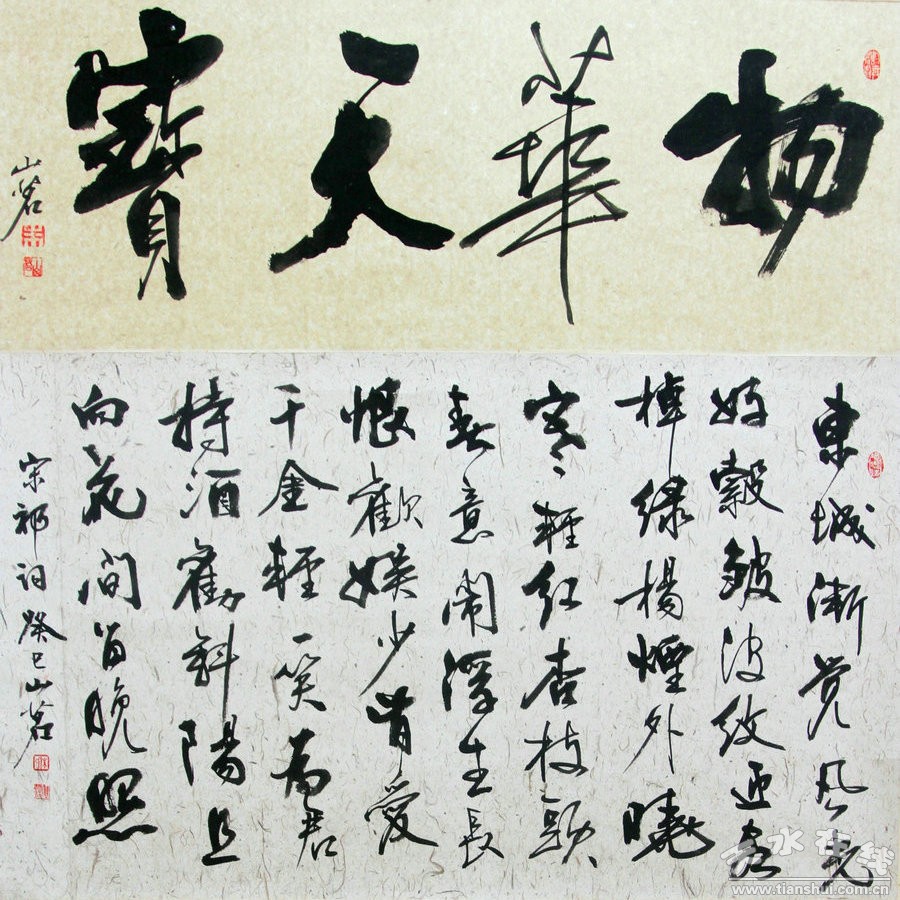 物華天寶
山茗
東城漸覺風光
好縠皺波紋迎客
棹綠楊煙外曉
寒輕紅杏枝頭
春意鬧浮生長
恨歡娛少肯愛
千金輕一笑為君
持酒勸斜陽且
向花間留晚照
宋祁詞癸巳山茗
天水在线
www.tianshui.com.cn